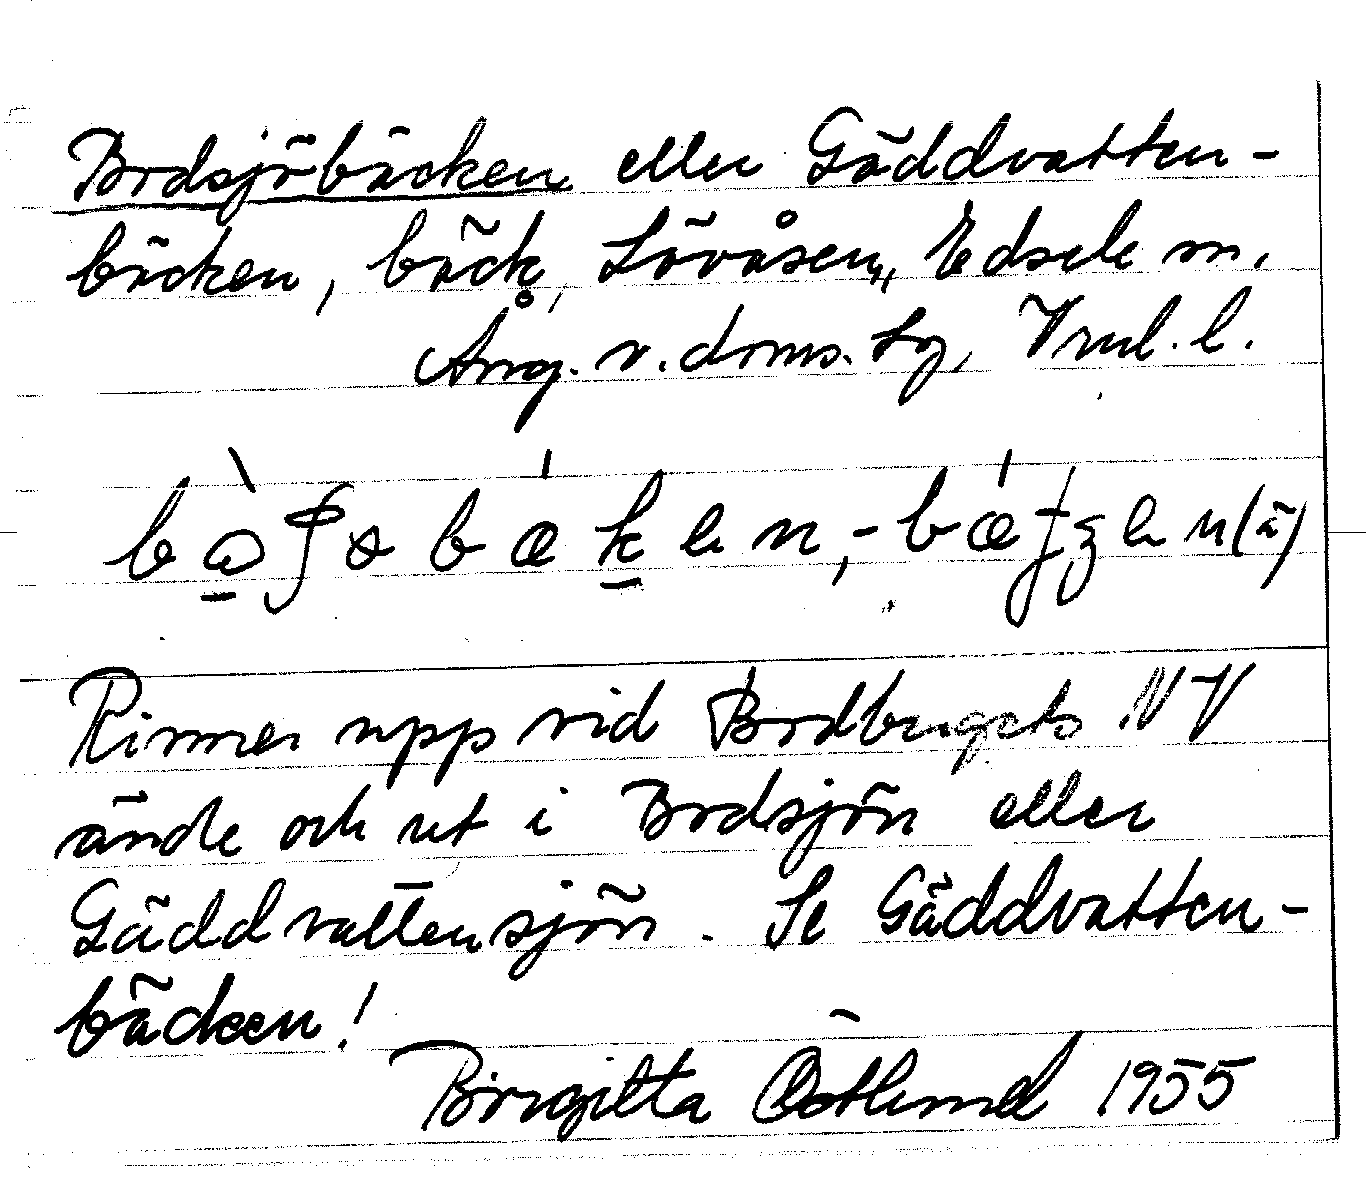 Bodsjöbäcken eller Gäddvatten-
bäcken, bäck, Lövåsen, Edsele sn,
Ång. v. doms. Lg, Vnl. l.
Rinner upp vid Bodbergets NV
ände och ut i Bodsjön eller
Gäddvattensjön. Se Gäddvatten-
bäcken!
Birgitta Östlund 1955